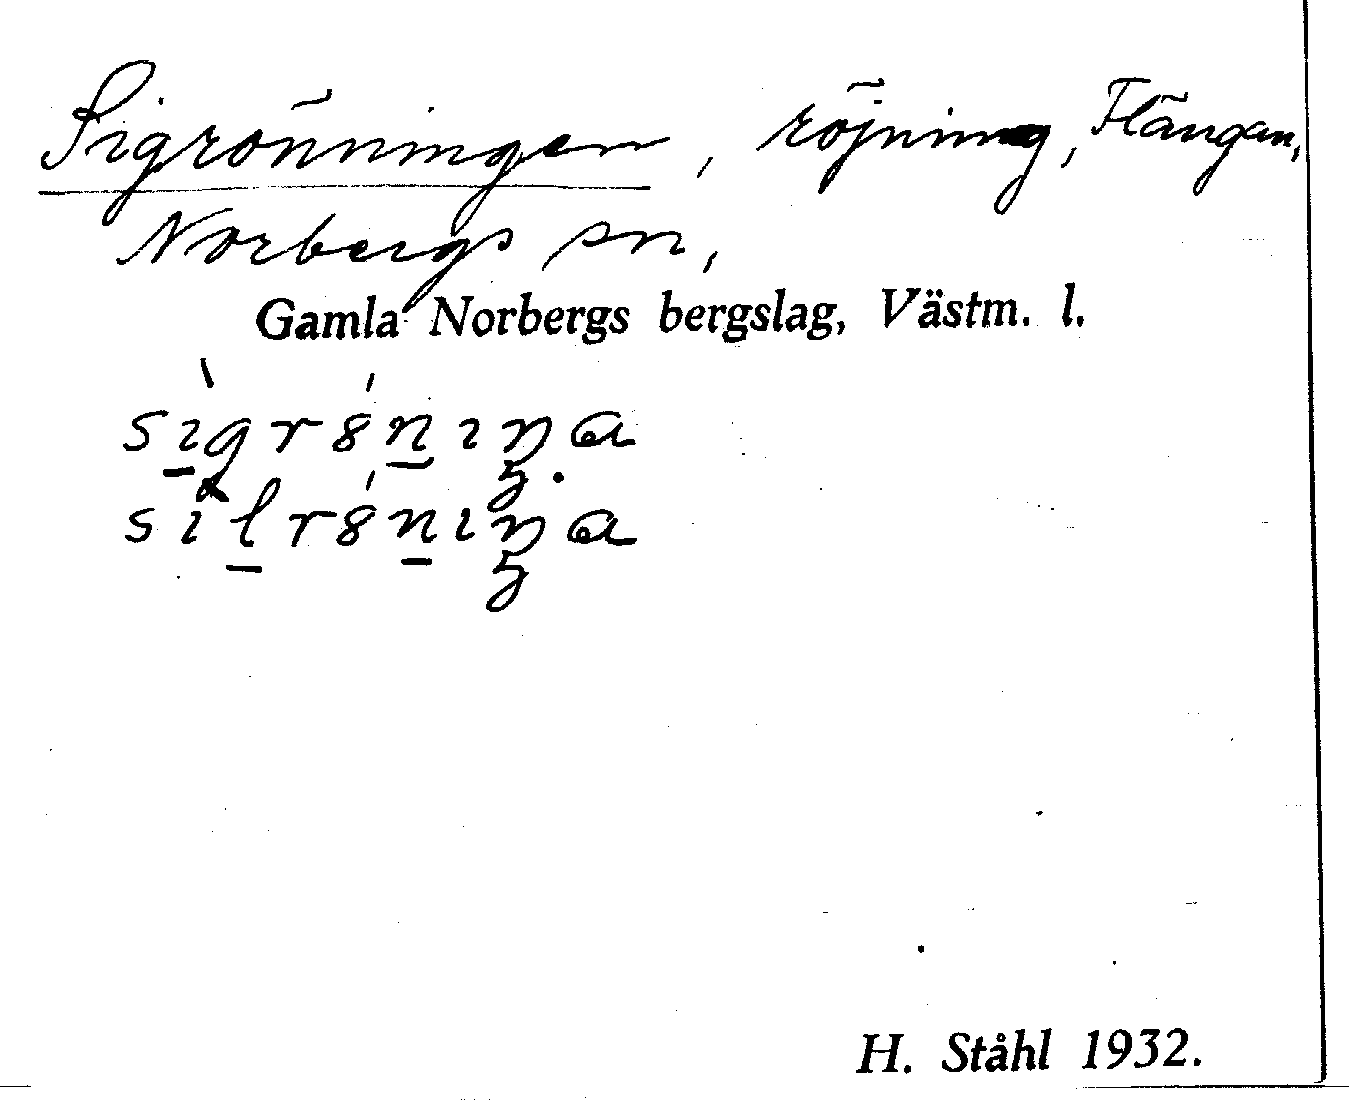 Sigrönningen, röjning, Flängan,
Norbergs sn,
Gamla Norbergs bergslag, Västm. l.
H. Ståhl 1932.